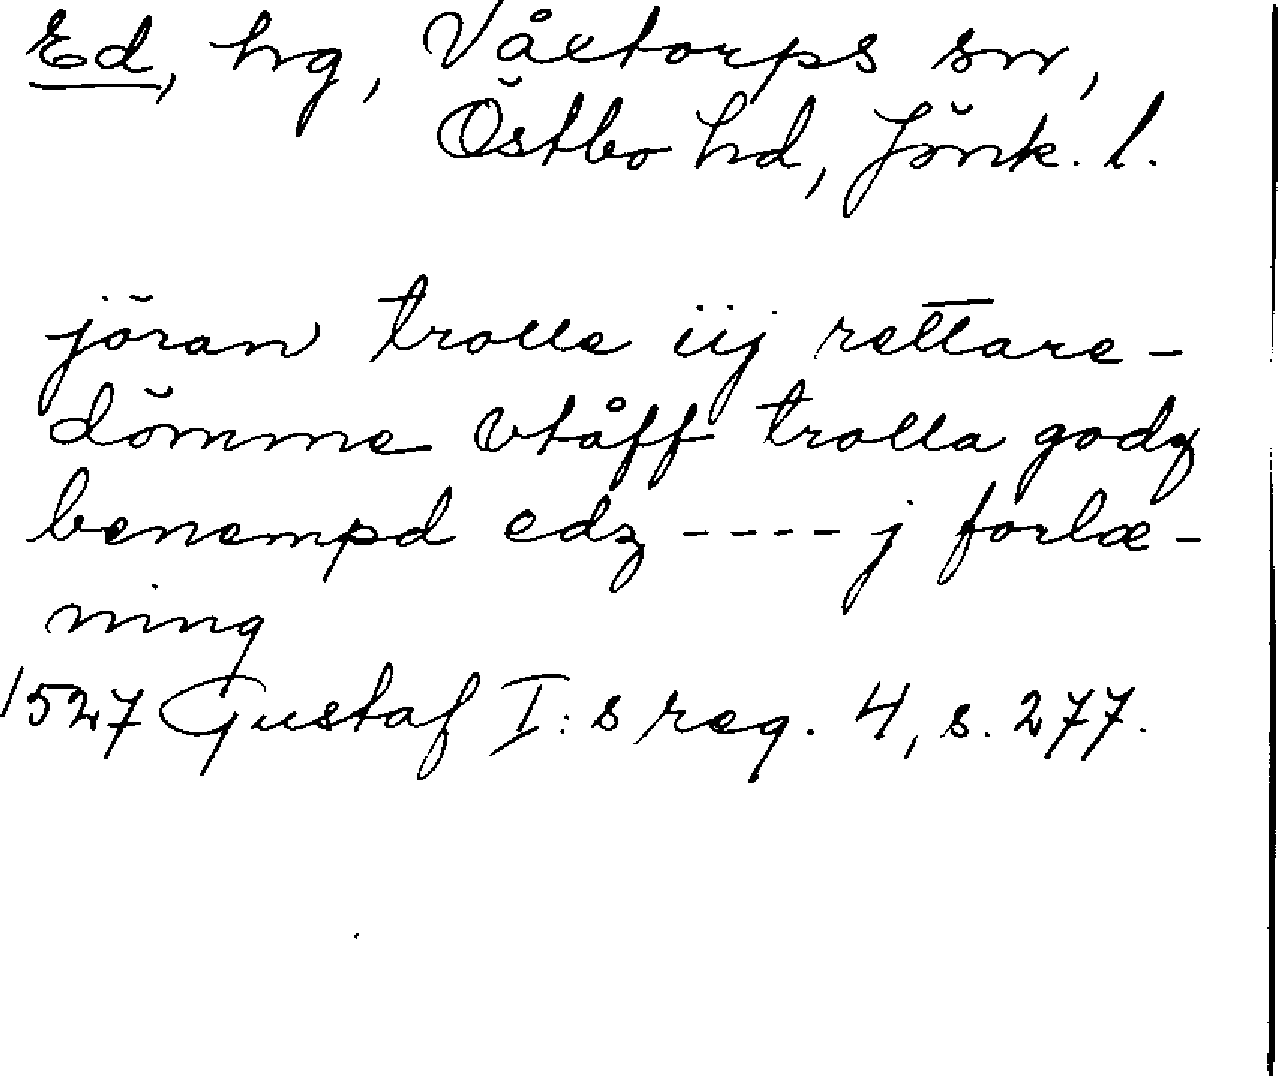 Ed, hg, Våxtorps sn,
Östbo hd, Jönk. l.
jöran trolle iij rettare-
dömme vtåff trolla godz
benempd edz ---- j forlæ-
ning
1527 Gustaf I:s reg. 4, s. 277.